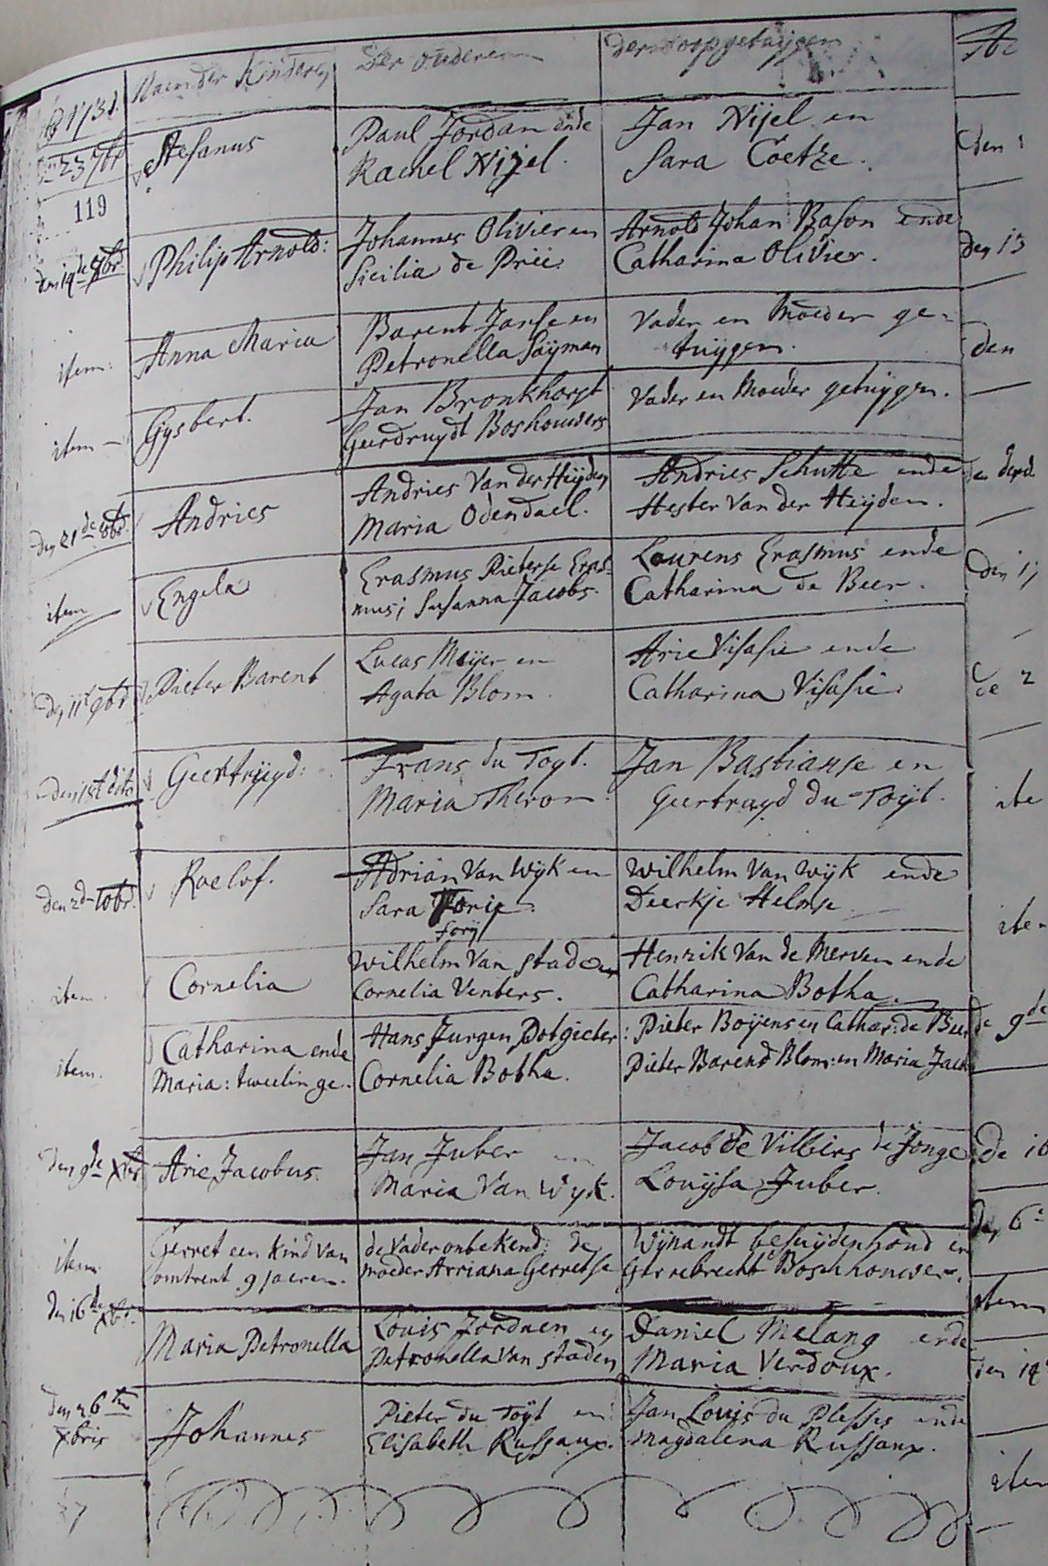 Naem der Kinderen
der ouderen
der doopgetuijgen
Ao 1731
den 23 7br
Stefanus
Paul Jordan ende
Rachel Nijel.
Jan Nijel en
Sara Coetze.
119
den 19de 8br
Philip Arnold:
Johannes Olivier en
Sicilia de Prie:
Arnold Johan Bason ende
Catharina Olivier.
item:
Anna Maria
Barent Janse en
Petronella Saijman
Vader en Moeder ge-
tuijgen.
item
Gysbert.
Jan Bronkhorst
Geerdruydt Boshouwers
Vader en Moeder getuijgen.
den 21de 8br
Andries
Andries Van der Heijden
Maria Odendael.
Andries Schutte ende
Hester Van der Heijden.
item
Engela
Erasmus Pieterse Eras-
mus; Susanna Jacobs.
Lourens Erasmus ende
Catharina de Beer.
den 11de 9br
Pieter Barent
Lucas Meijer en
Agata Blom
Arie Visasie ende
Catharina Visasie
dito
Geertruijd:
Frans du Toyt.
Maria Theron.
Jan Bastianse en
Geertruyd du Toijt.
den 2de 10br.
Roelof.
Adrian Van Wyk en
Sara
Forij
Wilhelm Van Wyk ende
Deerkje Helmse
item.
Cornelia
Wilhelm Van staden
Cornelia Venters.
Henrik Van de Merwen ende
Catharina Botha.
item.
Catharina ende
Maria: tweelinge.
Hans Jurgen Potgieter
Cornelia Botha.
: Pieter Boijens en Cathar: de Beer
Pieter Barend Blom: en Maria Jacobs
den 9de Xbr
Arie Jacobus.
Jan Juber en
Maria Van Wyk.
Jacob de Villiers de Jonge
Louijsa Juber.
item
Gerret een Kind van
omtrent 9 jaeren.
de Vader onbekend; de
moeder Arriana Gerretse
Wijnandt besuijdenhoud en
Gerrebrecht Boschhouwer.
den 16de Xbr.
Maria Petronella
Louis Jordaen en
Petronella Van staden
Daniel Melang ende
Maria Verdoux.
den 26ten
Xbris
Johannes
Pieter du Toyt en
Elisabeth Russaux.
Jan Louis du Plessis ende
Magdalena Russaux.
den
den 13
den
den
item
9de
item
den 14